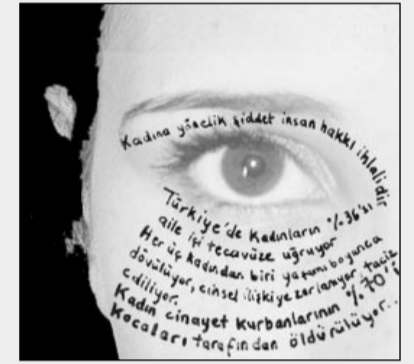 Kadına yönelik şiddet insan hakkı ihlalidir
Türkiye'de Kadınların %36'sı
aile içi tecavüze uğruyor
Her üç kadından biri yaşamı boyunca
dövülüyor, cinsel ilişkiye zorlanıyor, taciz
ediliyor.
Kadın cinayet kurbanlarının %70'i
Kocaları tarafından öldürülüyor...